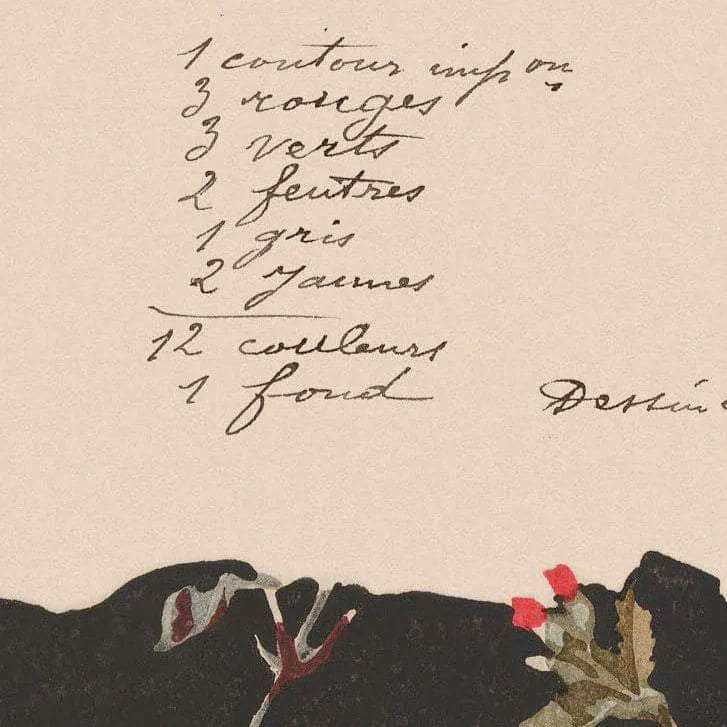 1 contour imp on
3 rouges
3 verts
2 feutres
1 gris
2 jaunes
12 couleurs
1 fond
Dessin